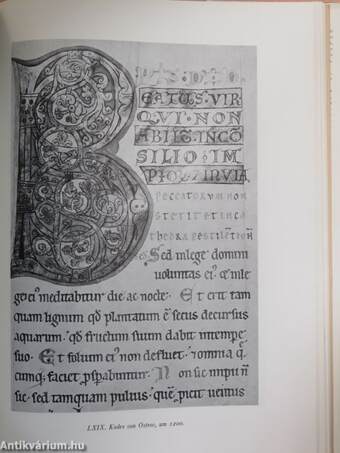 BEATUS · VIR ·
QVI · NON
ABIIT · IN CŌ
SILIO · IM
PIOꝜ · IN VIA
PECCATORVM NON
STETIT ET IN CA
THEDRA PESTILĒTIE NON
Sed in lege domini
voluntas ei' et in le
gei ei' meditabitur die ac nocte. Et erit tam
quam lignum qd plantatum ē secus decursus
aquarum · qd fructum suum dabit in tempore
suo. Et folium ei' non defluet · & omnia q̄
cumq; faciet psperabuntur. Non sic impii n̄
sic sed tamquam pulvis · quē picit ventus
LXIX. Kodex von Ostrov, um 1200.
Antikvárium.hu